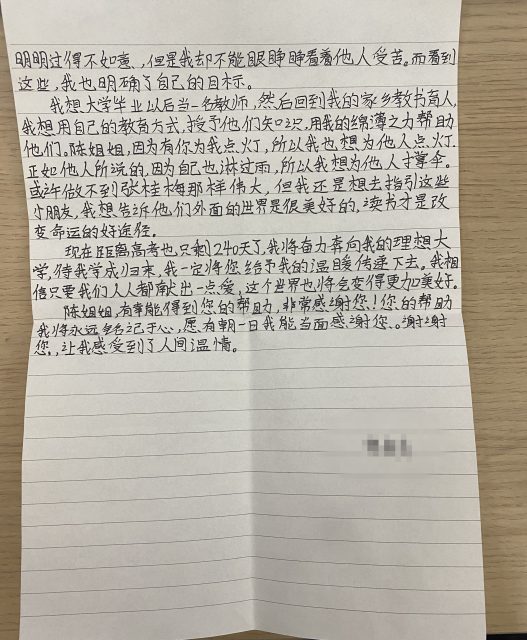 明明过得不如意,但是我却不能眼睁睁看着他人受苦。而看到
这些,我也明确了自己的目标。
我想大学毕业以后当一名教师,然后回到我的家乡教书育人,
我想用自己的教育方式,授予他们知识,用我的绵薄之力帮助
他们。陈姐姐,因为有你为我点灯,所以我也想为他人点灯.
正如他人所说的,因为自己也淋过雨,所以我想为他人撑伞。
或许做不到张桂梅那样伟大,但我还是想去指引这些
小朋友,我想告诉他们外面的世界是很美好的,读书才是改
变命运的好途径。
现在距离高考也只剩240天了,我将奋力奔向我的理想大
学,待我学成归来,我一定将您给予我的温暖传递下去。我相
信只要我们人人都献出一点爱,这个世界也将会变得更加美好。
陈姐姐,有幸能得到您的帮助,非常感谢您!您的帮助
我将永远铭记于心,愿有朝一日我能当面感谢您。谢谢
您,让我感受到了人间温情。